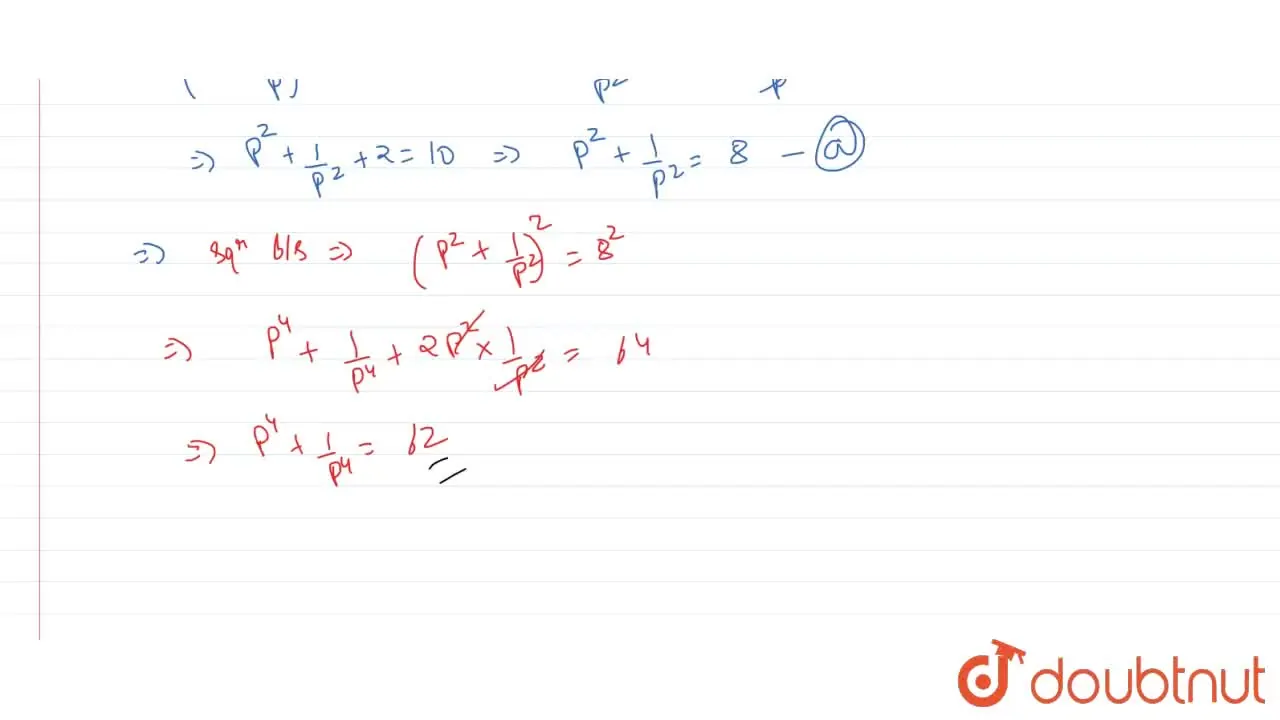 ⇒ p² + 1/p² + 2 = 10 ⇒ p² + 1/p² = 8 — ⓐ
⇒ sqⁿ b/s ⇒ (p² + 1/p²)² = 8²
⇒ p⁴ + 1/p⁴ + 2p² × 1/p² = 64
⇒ p⁴ + 1/p⁴ = 62
doubtnut